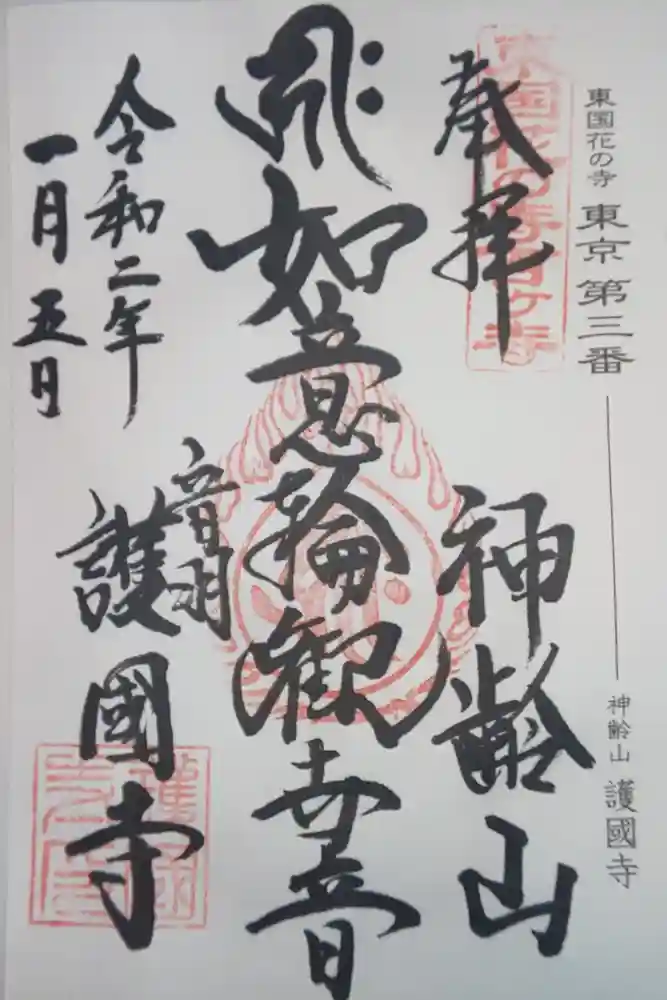 東国花の寺 東京 第三番 神齢山 護國寺
東国花の寺百ヶ寺
奉拝 神齢山
如意輪観世音
令和二年
一月五日
音羽
護國寺